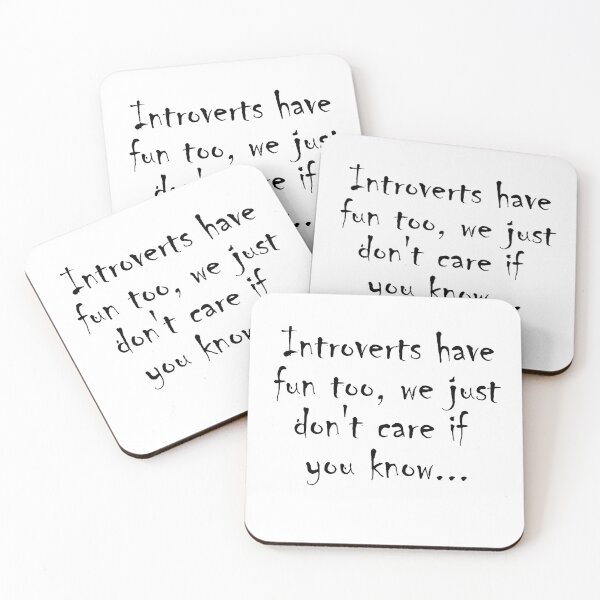 Introverts have
fun too, we just
if
...
Introverts have
fun too, we just
don't care if
you know...
Introverts have
fun too, we just
don't care if
you know
Introverts have
fun too, we just
don't care if
you know...